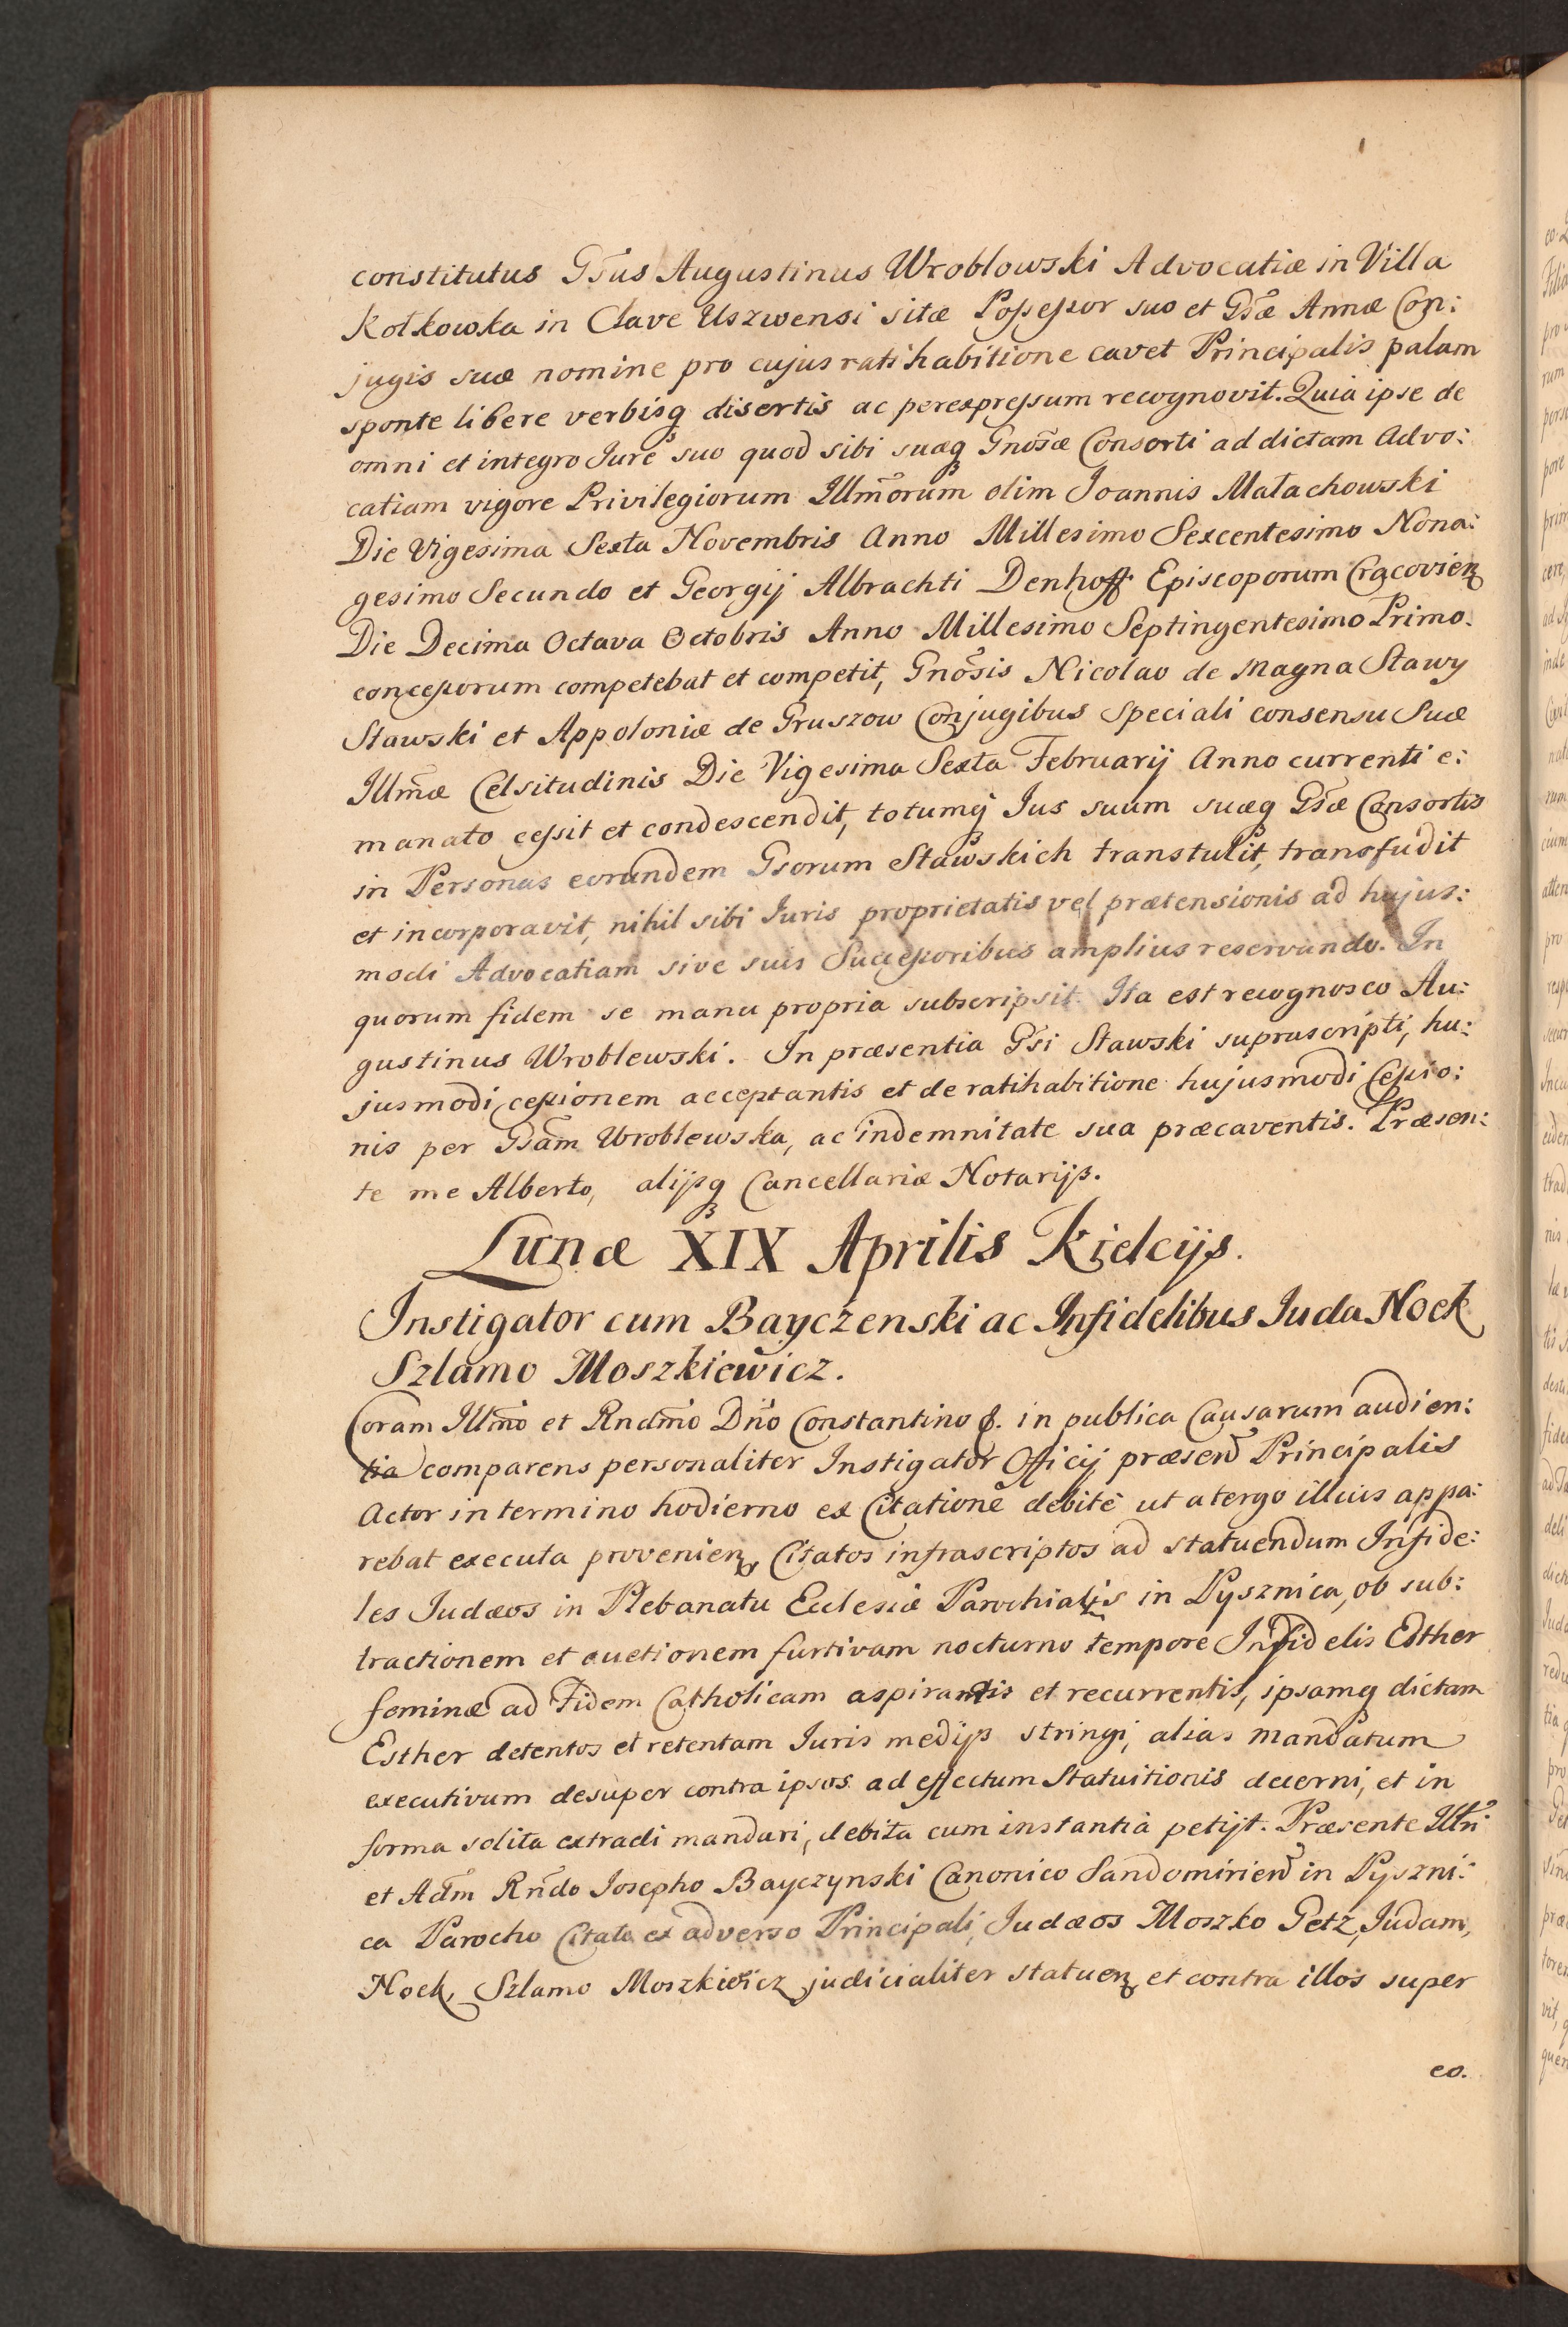 constitutus Gsus Augustinus Wroblowski Advocatiæ in Villa
Kotkowka in Clave Uszwensi sitæ Possessor suo et Gsæ Annæ Con:
jugis suæ nomine pro cujus ratihabitione cavet Principalis palam
sponte libere verbisq disertis ac perexpressum recognovit. Quia ipse de
omni et integro Jure suo quod sibi suæq Gnosæ Consorti ad dictam Advo:
catiam vigore Privilegiorum Illmorum olim Joannis Małachowski
Die Vigesima Sexta Novembris Anno Millesimo Sexcentesimo Nona:
gesimo Secundo et Georgij Albrachti Denhoff Episcoporum Cracovien
Die Decima Octava Octobris Anno Millesimo Septingentesimo Primo.
concessorum competebat et competit, Gnosis Nicolao de Magna Stawy
Stawski et Appoloniæ de Gruszow Conjugibus Speciali consensu Suæ
Illmæ Celsitudinis Die Vigesima Sexta Februarij Anno currenti e:
manato cessit et condescendit, totumq Jus suum suæq Gsæ Consortis
in Personas eorundem Gsorum Stawskich transtulit, transfudit
et incorporavit, nihil sibi Juris proprietatis vel prætensionis ad hujus:
modi Advocatiam sive suis Successoribus amplius reservando. In
quorum fidem se manu propria subscripsit. Ita est recognosco Au:
gustinus Wroblewski. In præsentia Gsi Stawski suprascripti, hu:
jusmodi cessionem acceptantis et de ratihabitione hujusmodi Cessio:
nis per Gsam Wroblewska, ac indemnitate sua præcaventis. Præsen:
te me Alberto, alijsq Cancellariæ Notarijs.
Lunæ XIX Aprilis Kielcijs.
Instigator cum Bayczenski ac Infidelibus Juda Nock
Szlamo Moszkiewicz.
Coram Illmo et Rndmo Dno Constantino &. in publica Causarum audien:
tia comparens personaliter Instigator Officij præsen Principalis
Actor in termino hodierno ex Citatione debite ut a tergo illius appa:
rebat executa provenien, Citatos infrascriptos ad statuendum Infide:
les Judæos in Plebanatu Ecclesiæ Parochialis in Pysznica, ob sub:
tractionem et auctionem furtivam nocturno tempore Infidelis Esther
feminæ ad Fidem Catholicam aspirantis et recurrentis, ipsamq dictam
Esther detentos et retentam Juris medijs stringi, alias mandatum
executivum desuper contra ipsos ad effectum Statuitionis decerni, et in
forma solita extradi mandari, debita cum instantia petijt. Præsente Illri
et Adm Rndo Josepho Bayczynski Canonico Sandomirien in Pyszni:
ca Parocho Citato ex adverso Principali, Judæos Moszko Getz, Judam,
Nock, Szlamo Moszkiewicz judicialiter statuen et contra illos super
eo.